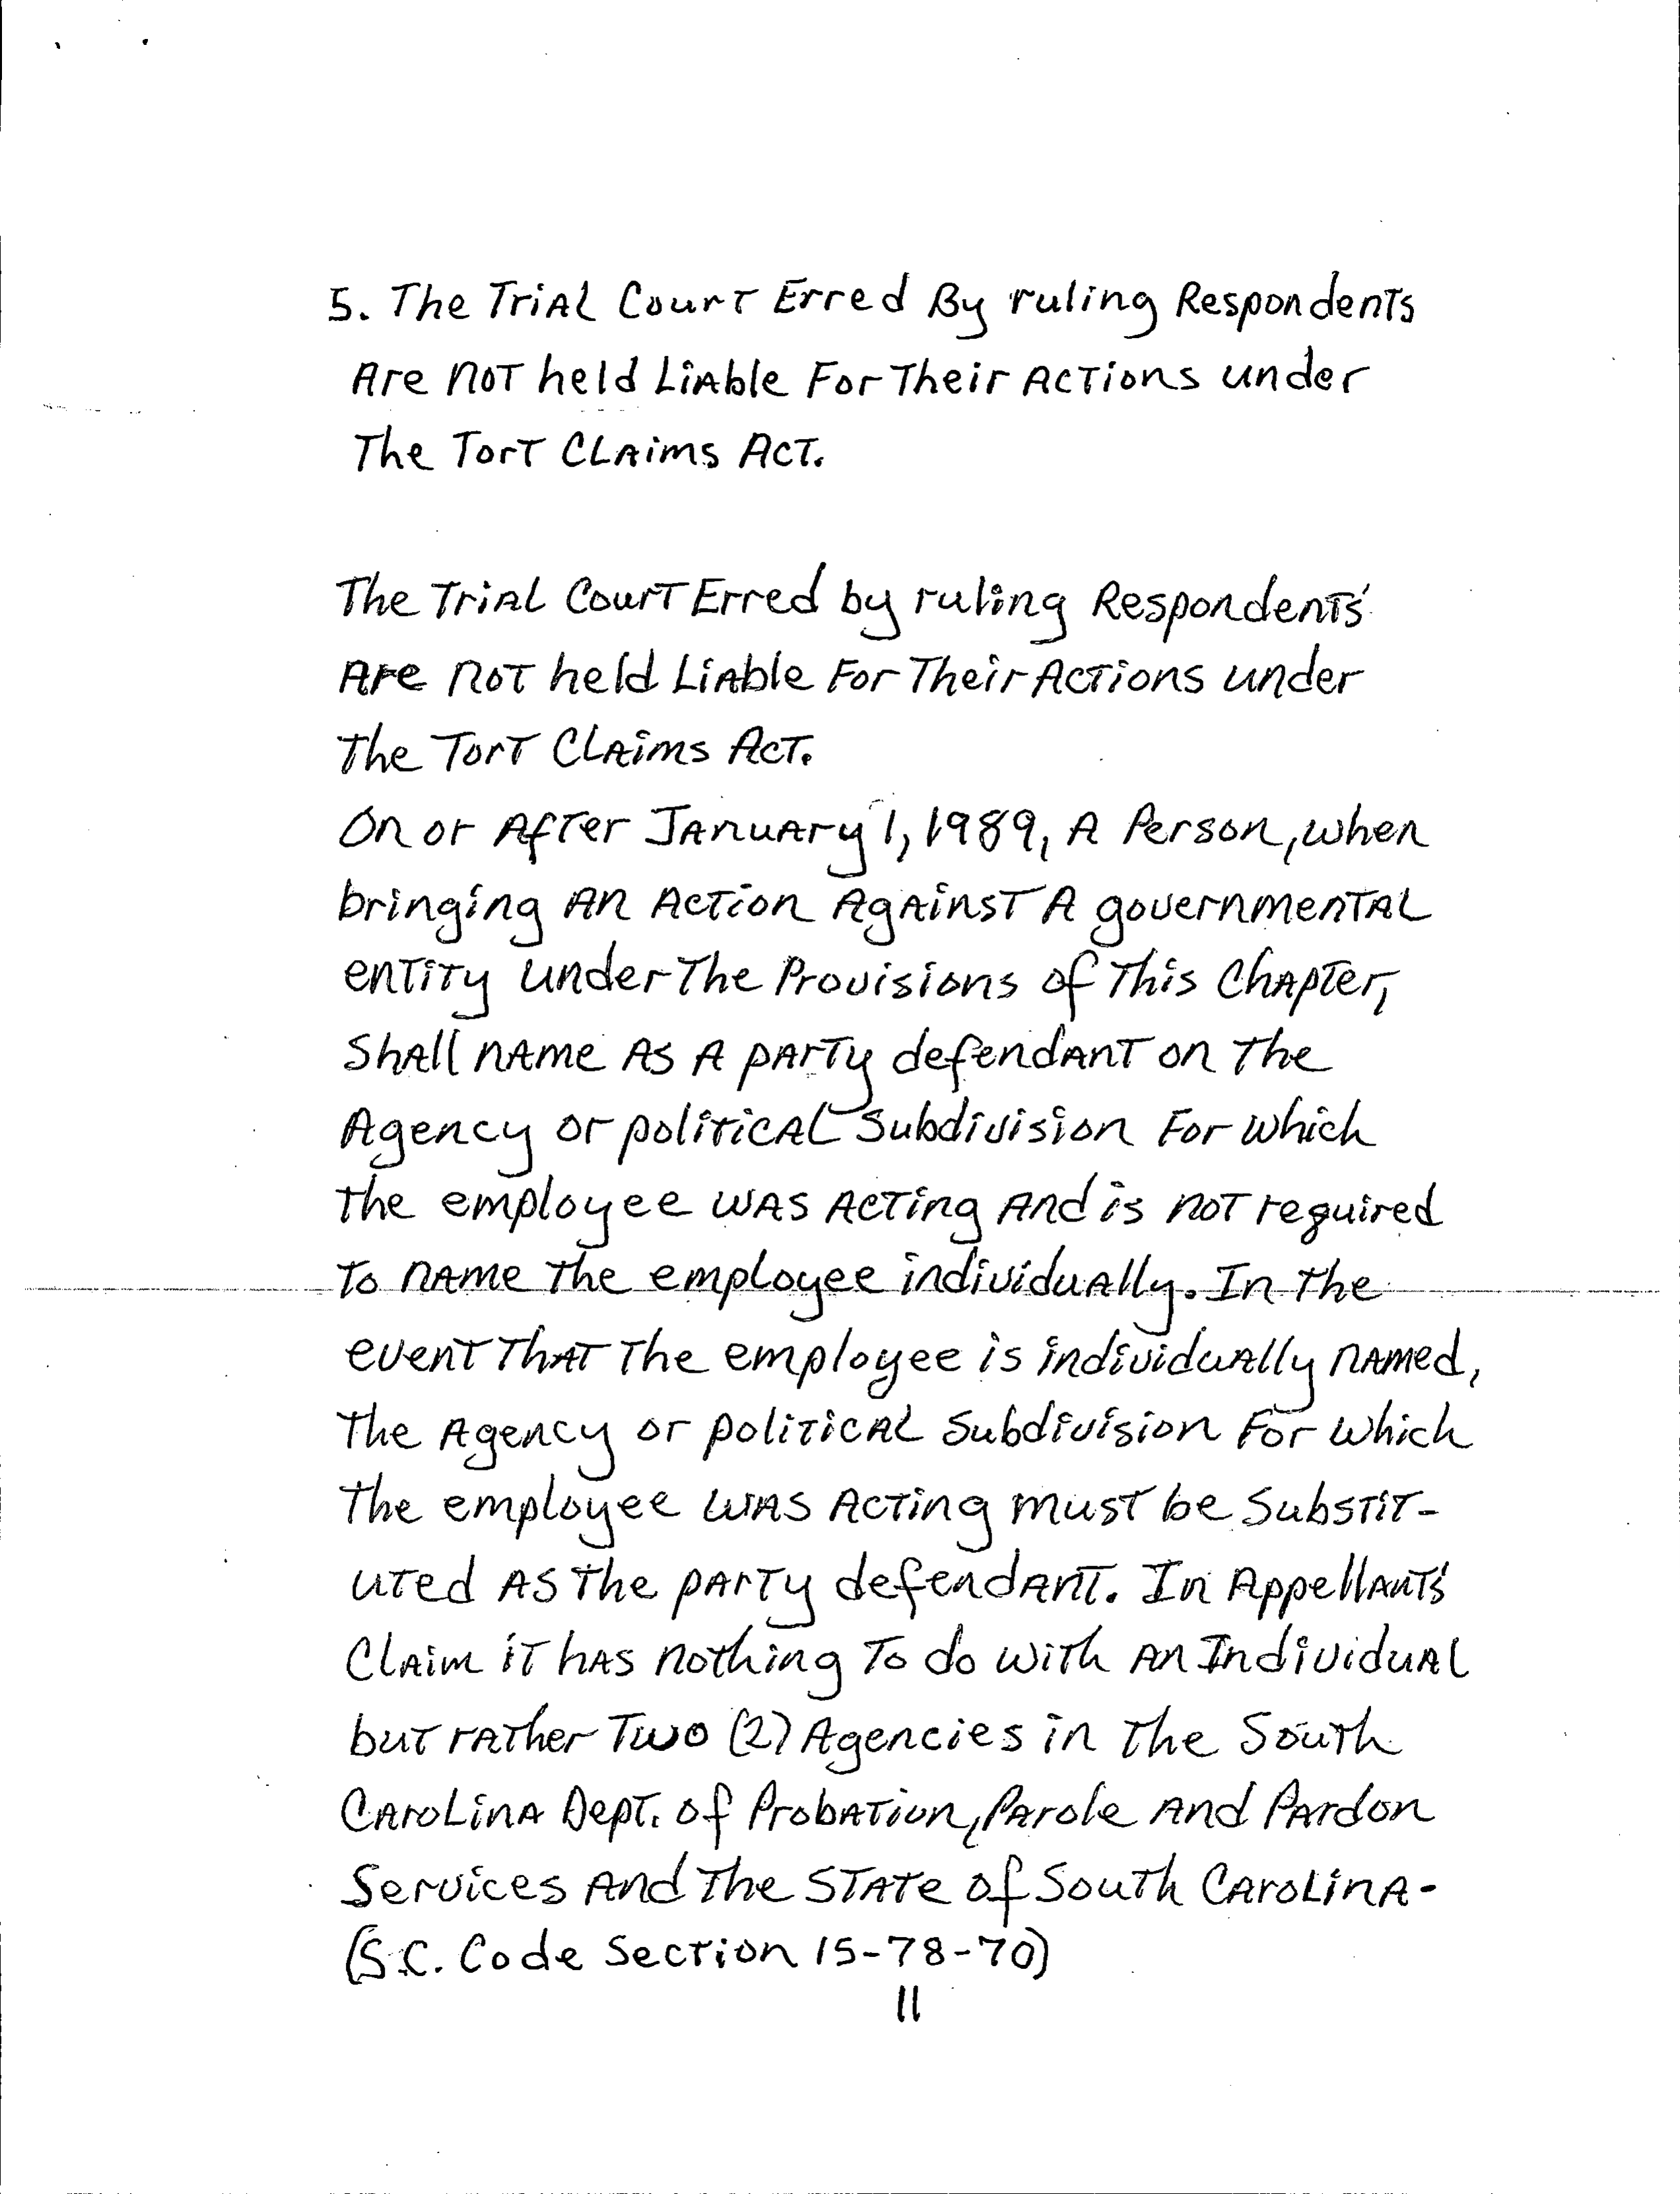 5. The Trial Court Erred By ruling Respondents
Are not held Liable For Their Actions under
The Tort Claims Act.
The Trial Court Erred by ruling Respondents'
Are not held Liable For Their Actions under
The Tort Claims Act.
On or After January 1, 1989, A Person, when
bringing An Action Against A governmental
entity under The Provisions of This Chapter,
Shall name As A party defendant on The
Agency or political Subdivision For which
The employee was Acting And is not required
To name The employee individually. In The
event That The employee is individually named,
The Agency or political Subdivision For which
The employee was Acting must be Substit-
uted As The party defendant. In Appellants'
Claim it has nothing To do with An Individual
but rather Two (2) Agencies in The South
Carolina Dept. of Probation, Parole And Pardon
Services And The State of South Carolina-
(S.C. Code Section 15-78-70)
11